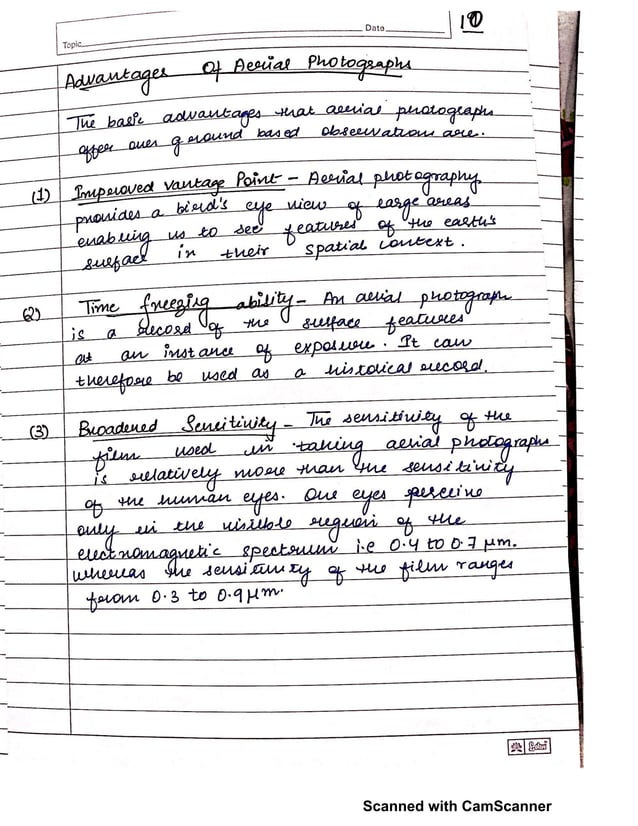 Date
10
Topic
Advantages Of Aerial Photographs
The basic advantages that aerial photographs
offer over ground based observation are.
(1) Improved Vantage Point - Aerial photography
provides a bird's eye view of large areas
enabling us to see features of the earth's
surface in their spatial context.
(2) Time freezing ability - An aerial photograph
is a record of the surface features
at an instance of exposure. It can
therefore be used as a historical record.
(3) Broadened Sencitivity - The sensitivity of the
film used in taking aerial photographs
is relatively more than the sensitivity
of the human eyes. Our eyes perceive
only in the visible region of the
electromagnetic spectrum i.e 0.4 to 0.7 μm.
whereas the sensitivity of the film ranges
from 0.3 to 0.9μm.
Scanned with CamScanner